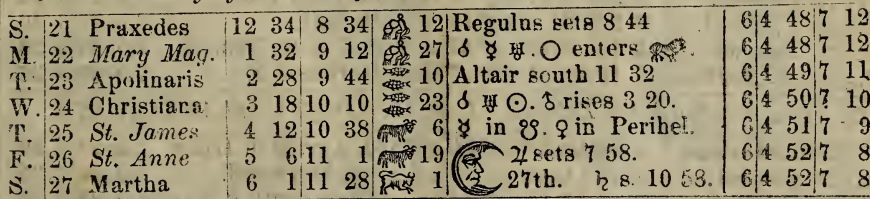 S. 21 Praxedes 12 34 8 34 12 Regulus sets 8 44 6 4 48 7 12
M. 22 Mary Mag. 1 32 9 12 27 ☌ ☿ ♅. ☉ enters 6 4 48 7 12
T. 23 Apolinaris 2 28 9 44 10 Altair south 11 32 6 4 49 7 11
W. 24 Christiana 3 18 10 10 23 ☌ ♅ ☉. rises 3 20. 6 4 50 7 10
T. 25 St. James 4 12 10 38 6 ☿ in ☋. ♀ in Perihel. 6 4 51 7 9
F. 26 St. Anne 5 6 11 1 19 ♃ sets 7 58. 6 4 52 7 8
S. 27 Martha 6 1 11 28 1 27th. ♄ s. 10 58. 6 4 52 7 8